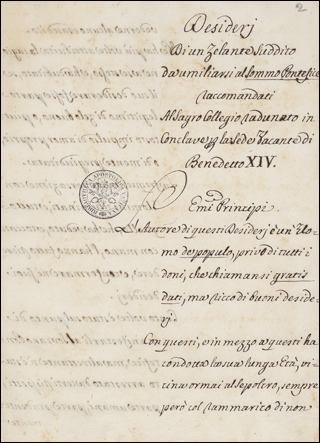 2
Desiderj
Di un Zelante Suddito
da umiliarsi al Sommo Pontefice
raccomandati
Al Sagro Collegio radunato in
Conclave per la Sede Vacante di
Benedetto XIV.
Emi Principi.
L'Autore di questi Desiderj è un'Uo-
mo de populo, privo di tutti i
doni, che chiamansi gratis
dati, ma ricco di buoni deside-
rj.
Con questi, e in mezzo a questi ha
condotta la sua lunga Età, vi-
cina ormai al Sepolcro, sempre
però col rammarico di non